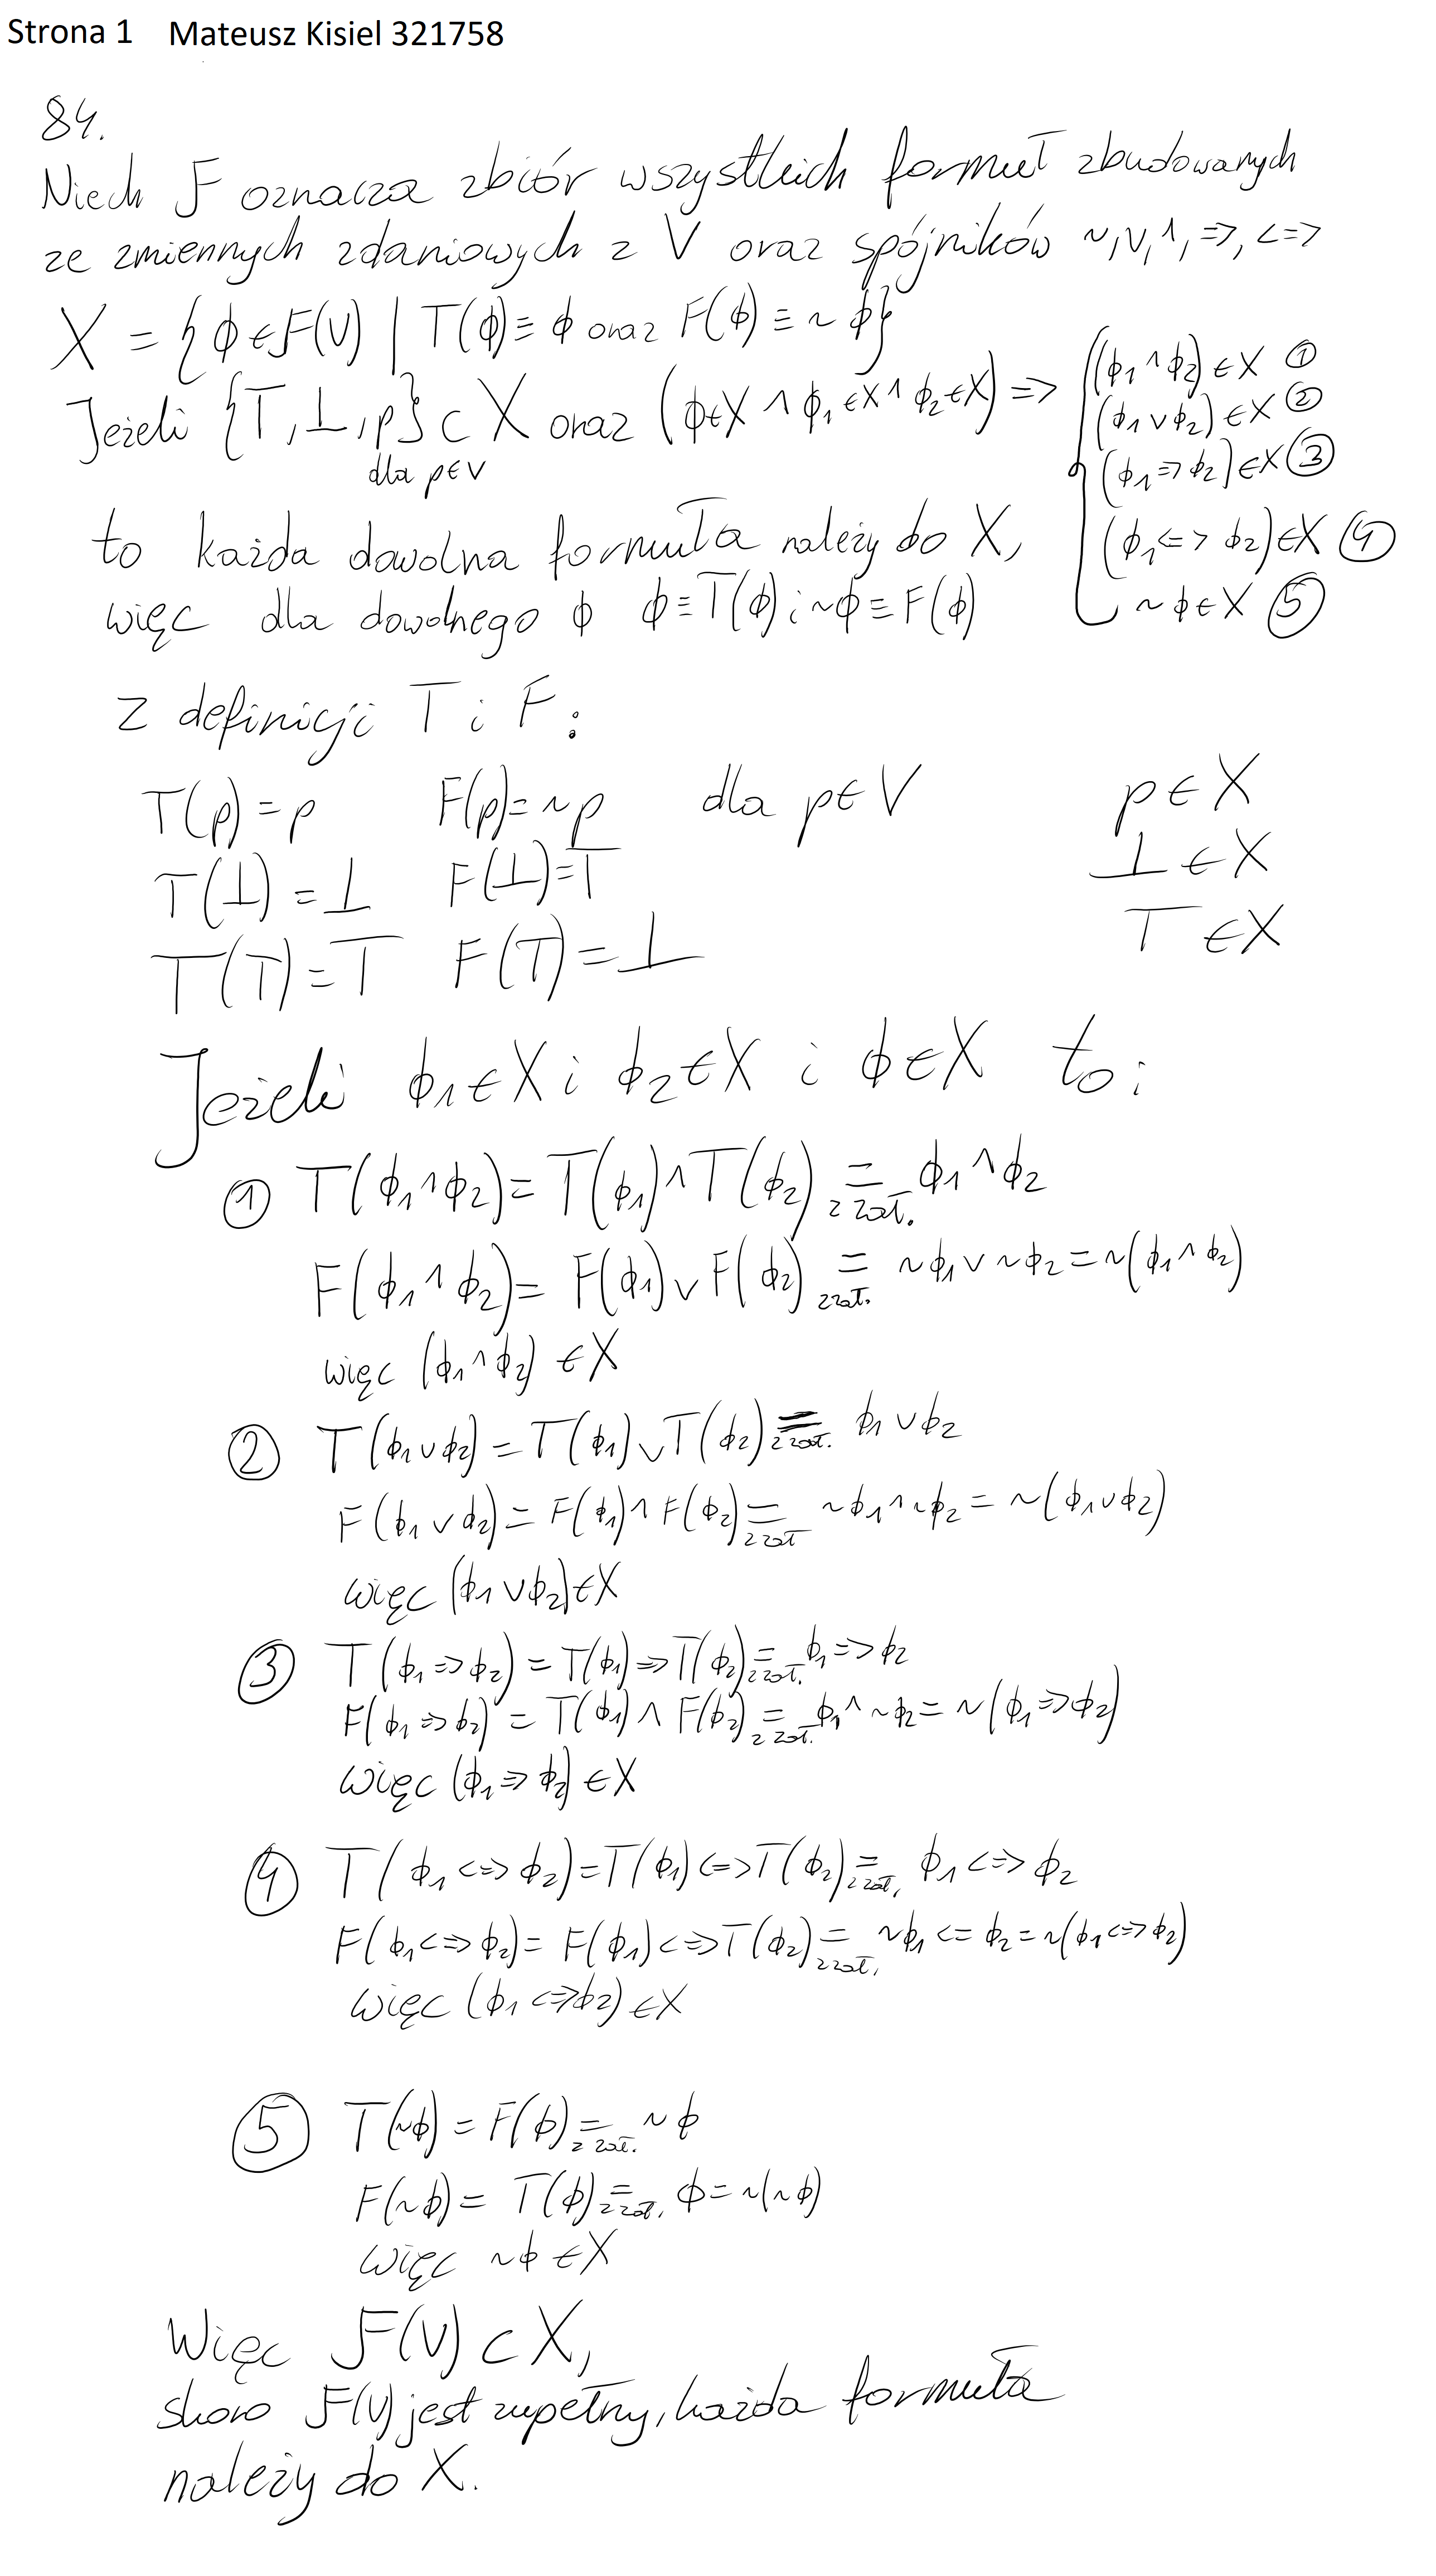 Strona 1 Mateusz Kisiel 321758
84.
Niech F oznacza zbiór wszystkich formuł zbudowanych
ze zmiennych zdaniowych z V oraz spójników ~,∨,∧,=>,<=>
X = {ϕ∈F(V) | T(ϕ)≡ϕ oraz F(ϕ)≡~ϕ}
Jeżeli {⊤,⊥,p}⊂X oraz (ϕ∈X ∧ ϕ₁∈X ∧ ϕ₂∈X) =>
dla p∈V
(ϕ₁∧ϕ₂)∈X ①
(ϕ₁∨ϕ₂)∈X ②
(ϕ₁=>ϕ₂)∈X ③
(ϕ₁<=>ϕ₂)∈X ④
~ϕ∈X ⑤
to każda dowolna formuła należy do X,
więc dla dowolnego ϕ ϕ≡T(ϕ) i ~ϕ≡F(ϕ)
z definicji T i F:
T(p)=p F(p)=~p dla p∈V p∈X
T(⊥)=⊥ F(⊥)=⊤ ⊥∈X
T(⊤)=⊤ F(⊤)=⊥ ⊤∈X
Jeżeli ϕ₁∈X i ϕ₂∈X i ϕ∈X to:
① T(ϕ₁∧ϕ₂)=T(ϕ₁)∧T(ϕ₂) = z zał. ϕ₁∧ϕ₂
F(ϕ₁∧ϕ₂)=F(ϕ₁)∨F(ϕ₂) = z zał. ~ϕ₁∨~ϕ₂=~(ϕ₁∧ϕ₂)
więc (ϕ₁∧ϕ₂)∈X
② T(ϕ₁∨ϕ₂)=T(ϕ₁)∨T(ϕ₂) = z zał. ϕ₁∨ϕ₂
F(ϕ₁∨ϕ₂)=F(ϕ₁)∧F(ϕ₂) = z zał ~ϕ₁∧~ϕ₂=~(ϕ₁∨ϕ₂)
więc (ϕ₁∨ϕ₂)∈X
③ T(ϕ₁=>ϕ₂)=T(ϕ₁)=>T(ϕ₂) = z zał. ϕ₁=>ϕ₂
F(ϕ₁=>ϕ₂)=T(ϕ₁)∧F(ϕ₂) = z zał. ϕ₁∧~ϕ₂=~(ϕ₁=>ϕ₂)
więc (ϕ₁=>ϕ₂)∈X
④ T(ϕ₁<=>ϕ₂)=T(ϕ₁)<=>T(ϕ₂) = z zał. ϕ₁<=>ϕ₂
F(ϕ₁<=>ϕ₂)=F(ϕ₁)<=>T(ϕ₂) = z zał. ~ϕ₁<=ϕ₂=~(ϕ₁<=>ϕ₂)
więc (ϕ₁<=>ϕ₂)∈X
⑤ T(~ϕ)=F(ϕ) = z zał. ~ϕ
F(~ϕ)=T(ϕ) = z zał. ϕ=~(~ϕ)
więc ~ϕ∈X
Więc F(V)⊂X,
skoro F(V) jest zupełny, każda formuła
należy do X.